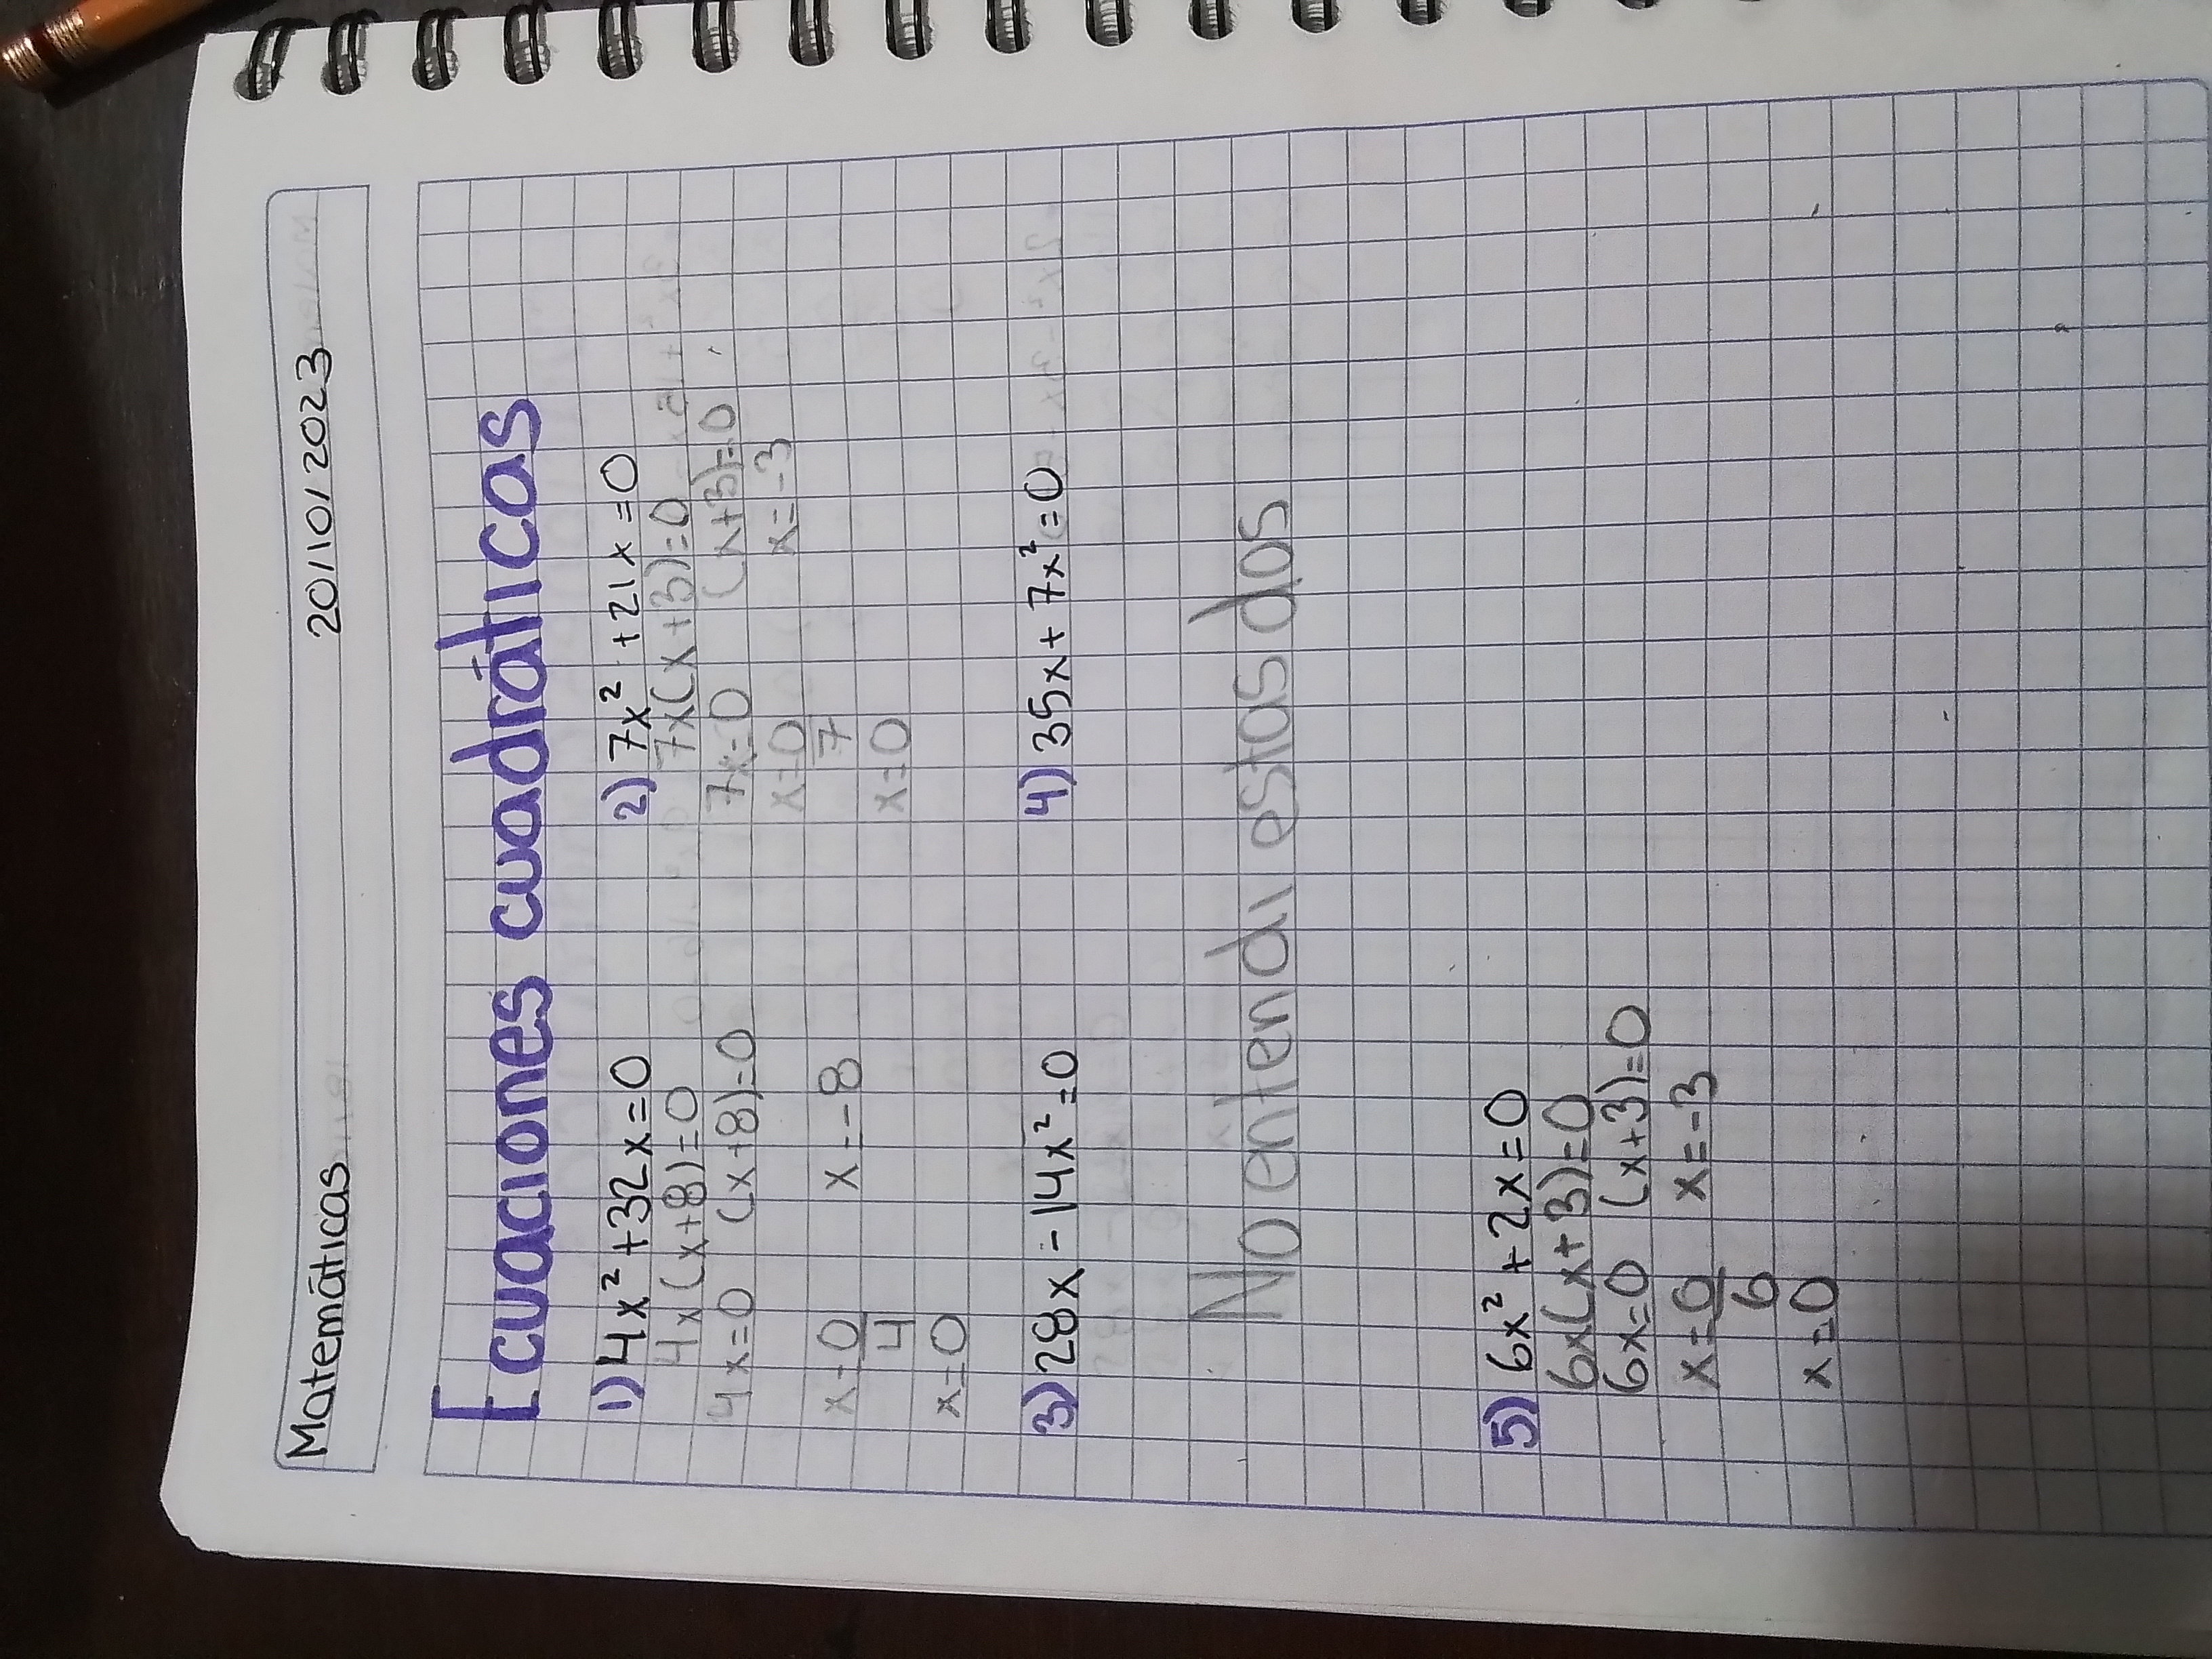 Matemáticas 20/10/2023
Ecuaciones cuadráticas
1) 4x² + 32x = 0
4x(x+8)=0
4x=0 (x+8)=0
x=0/4 x=-8
x=0
2) 7x² + 21x = 0
7x(x+3)=0
7x=0 (x+3)=0
x=0/7 x=-3
x=0
3) 28x - 14x² = 0
4) 35x + 7x² = 0
No entendi estas dos
5) 6x² + 2x = 0
6x(x+3)=0
6x=0 (x+3)=0
x=0/6 x=-3
x=0